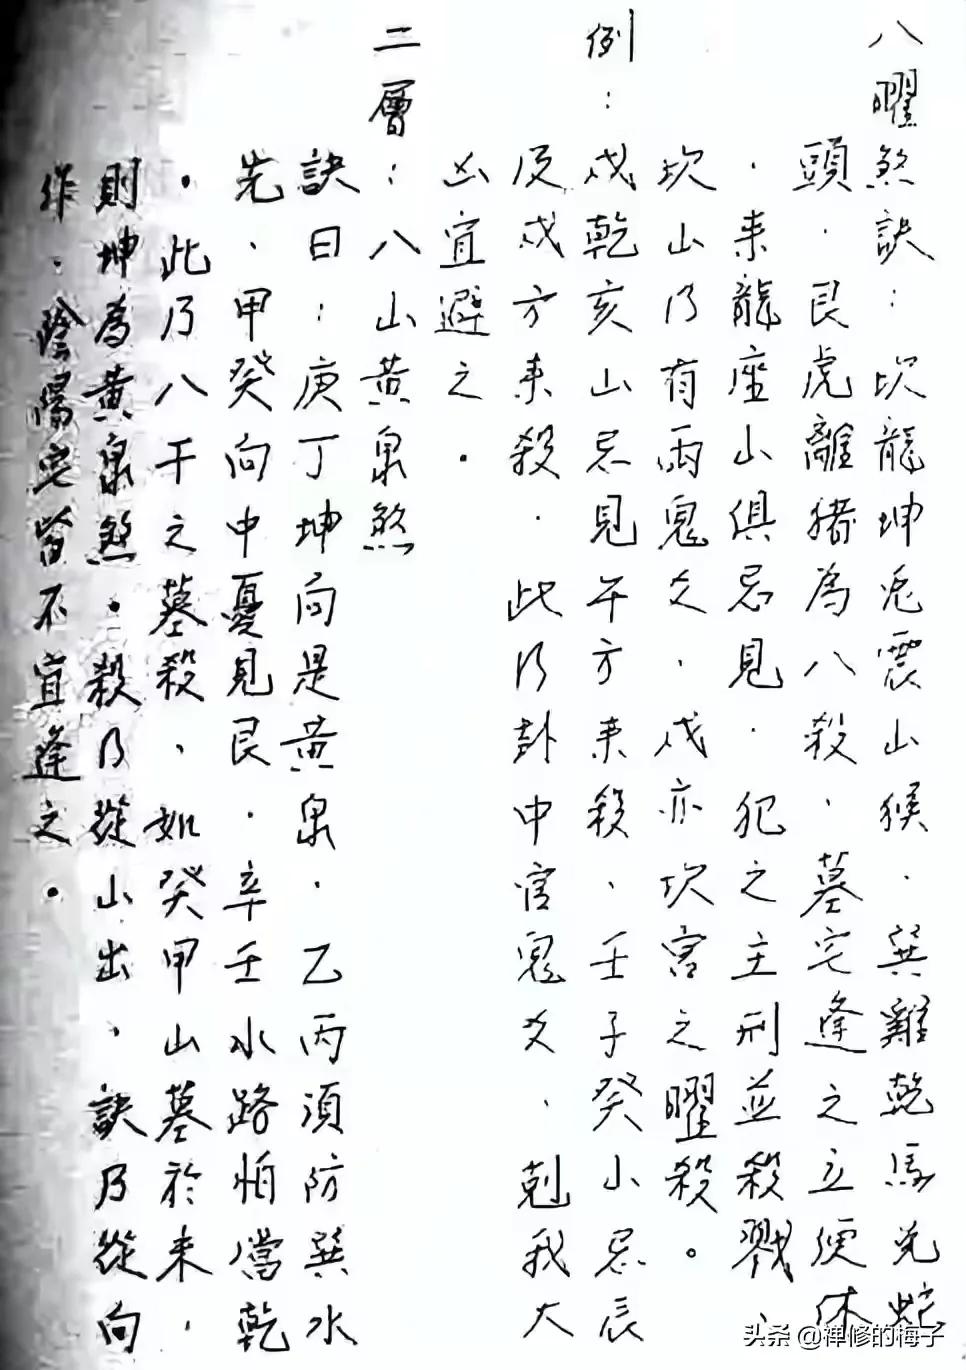 八曜煞訣：坎龍坤兎震山猴．巽雞乾馬兌蛇
頭．艮虎離猪為八殺，墓宅逢之立便休
．来龍座山俱忌見．犯之主刑並殺戮、
坎山乃有兩鬼爻．戍亦坎宫之曜殺。
例：戍乾亥山忌見午方来殺、壬子癸山忌辰
及戍方来殺．此乃卦中官鬼爻．剋我大
凶宜避之．
二層：八山黄泉煞
訣曰：庚丁坤向是黄泉．乙丙須防巽水
先、甲癸向中憂見艮．辛壬水路怕當乾
．此乃八干之墓殺、如癸甲山墓於未，
則坤為黄泉煞．殺乃從山出、訣乃從向
作．陰陽宅皆不宜逢之．
头条 @禅修的梅子